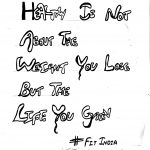 Healthy Is Not
About The
Weight You Lose
But The
Life You Gain
# Fit India